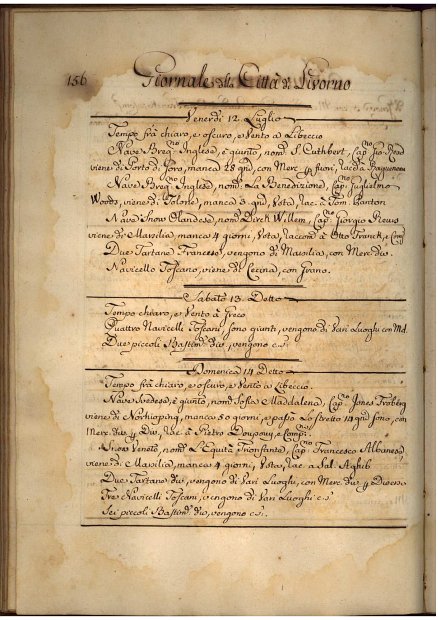 156 Giornale della Città di Livorno
Venerdi 12. Luglio
Tempo frà chiaro, e oscuro, e Vento a Libeccio
Nave Breg:no Inglese, è giunto, nom:o S. Cuthbert, Cap:no Gio: Read
viene di Porto di Goro, manca 28 gni, con Merc: 4 fuori, racc:a a
Nave Breg:no Inglese, nom:o La Benedizione, Cap:no Guglielmo
Woods, viene di Tolone, manca 3 gni, Vota, rac: a Tom: Panton
Nave Snow Olandese, nom:o Dirck Willem, Cap:no Giorgio Reus
viene di Marsilia, manca 4 giorni, Vota, raccom: a Otto Franck, e Comp:
Due Tartane Francese, vengono di Marsilia, con Merc: div:
Navicello Toscano, viene di Cecina, con Grano.
Sabato 13. Detto
Tempo chiaro, e Vento à Greco
Quattro Navicelli Toscani, sono giunti, vengono di Vari Luoghi con Md.
Due piccoli Bastim: div: vengono c.s.
Domenica 14 Detto
Tempo frà chiaro, e oscuro, e Vento à Libeccio.
Nave Svedese, è giunto, nom:o Sofia Maddalena, Cap:no Jones Froberg
viene di Northioping, manca 50 giorni, e passò lo stretto 14 gni sono, con
Merc: div: 4 Div:, rac: à Pietro Dupouy, e Comp:
Veneto, nom:o L'Equità Trionfante, Cap:no Francesco Albanese,
viene di Marsilia, manca 4 giorni, Vota, rac: a Sal: Aghib
Due Tartane div: vengono di Vari Luoghi, con Merc: div: 4 Diversi
Tre Navicelli Toscani, vengono di Vari Luoghi c.s
Sei piccoli Bastim: div: vengono c.s.